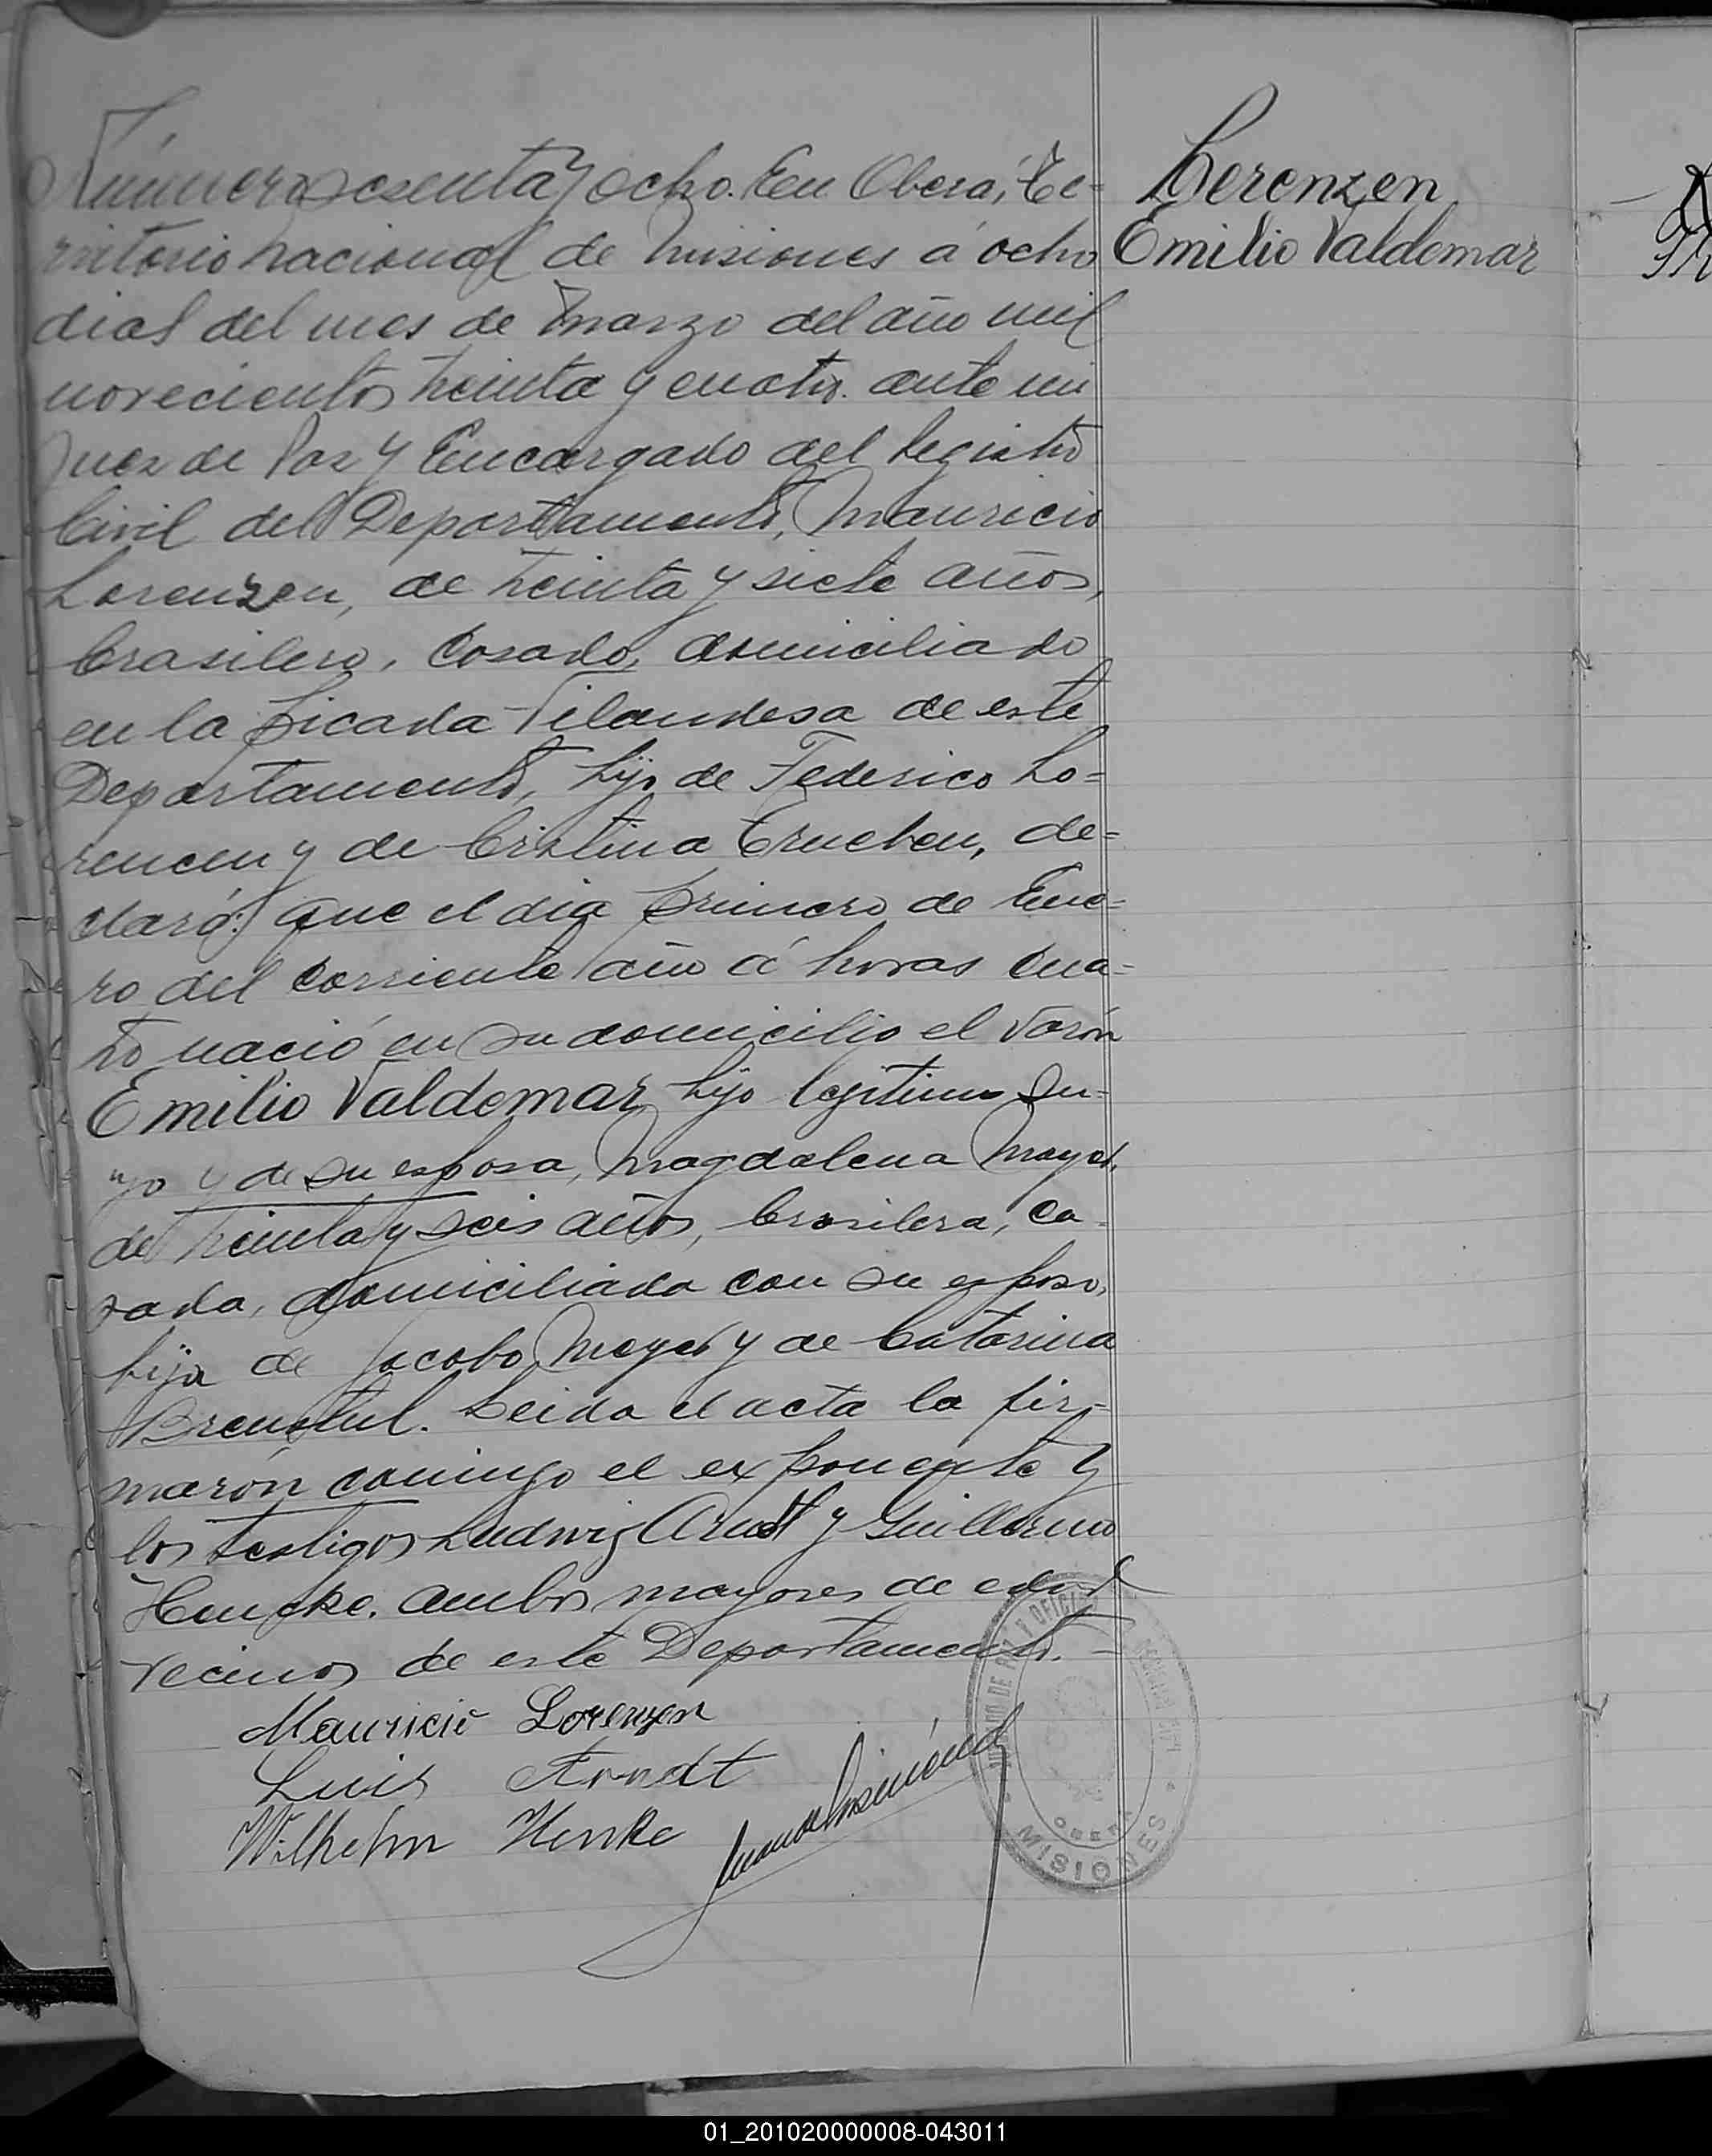 Número sesenta y ocho. En Oberá, Te=
rritorio nacional de Misiones á ocho
dias del mes de Marzo del año mil
novecientos treinta y cuatro. ante mi
Juez de Paz y Encargado del Registro
Civil del Departamento, Mauricio
Lorenzen, de treinta y siete años,
brasilero, casado, domiciliado
en la picada Filandesa de este
Departamento, hijo de Federico Lo=
rencen y de Cristina de=
claró: que el dia primero de Ene=
ro del corriente año á horas cua=
tro nació en su domicilio el varón
Emilio Valdemar hijo legitimo su=
yo y de su esposa, Magdalena
de treinta y seis años, brasilera, ca=
sada, domiciliada con su esposo,
hija de Jacobo y de Catarina
Leida el acta la fir=
marón conmigo el exponente y
los testigos Ludwig Arndt y Guillermo
Hencke. ambos mayores de edad
vecinos de este Departamento. =
Mauricio Lorenzen
Luis Arndt
Wilhelm Henke
OBERÁ
MISIONES
Lorenzen
Emilio Valdemar
01_201020000008-043011